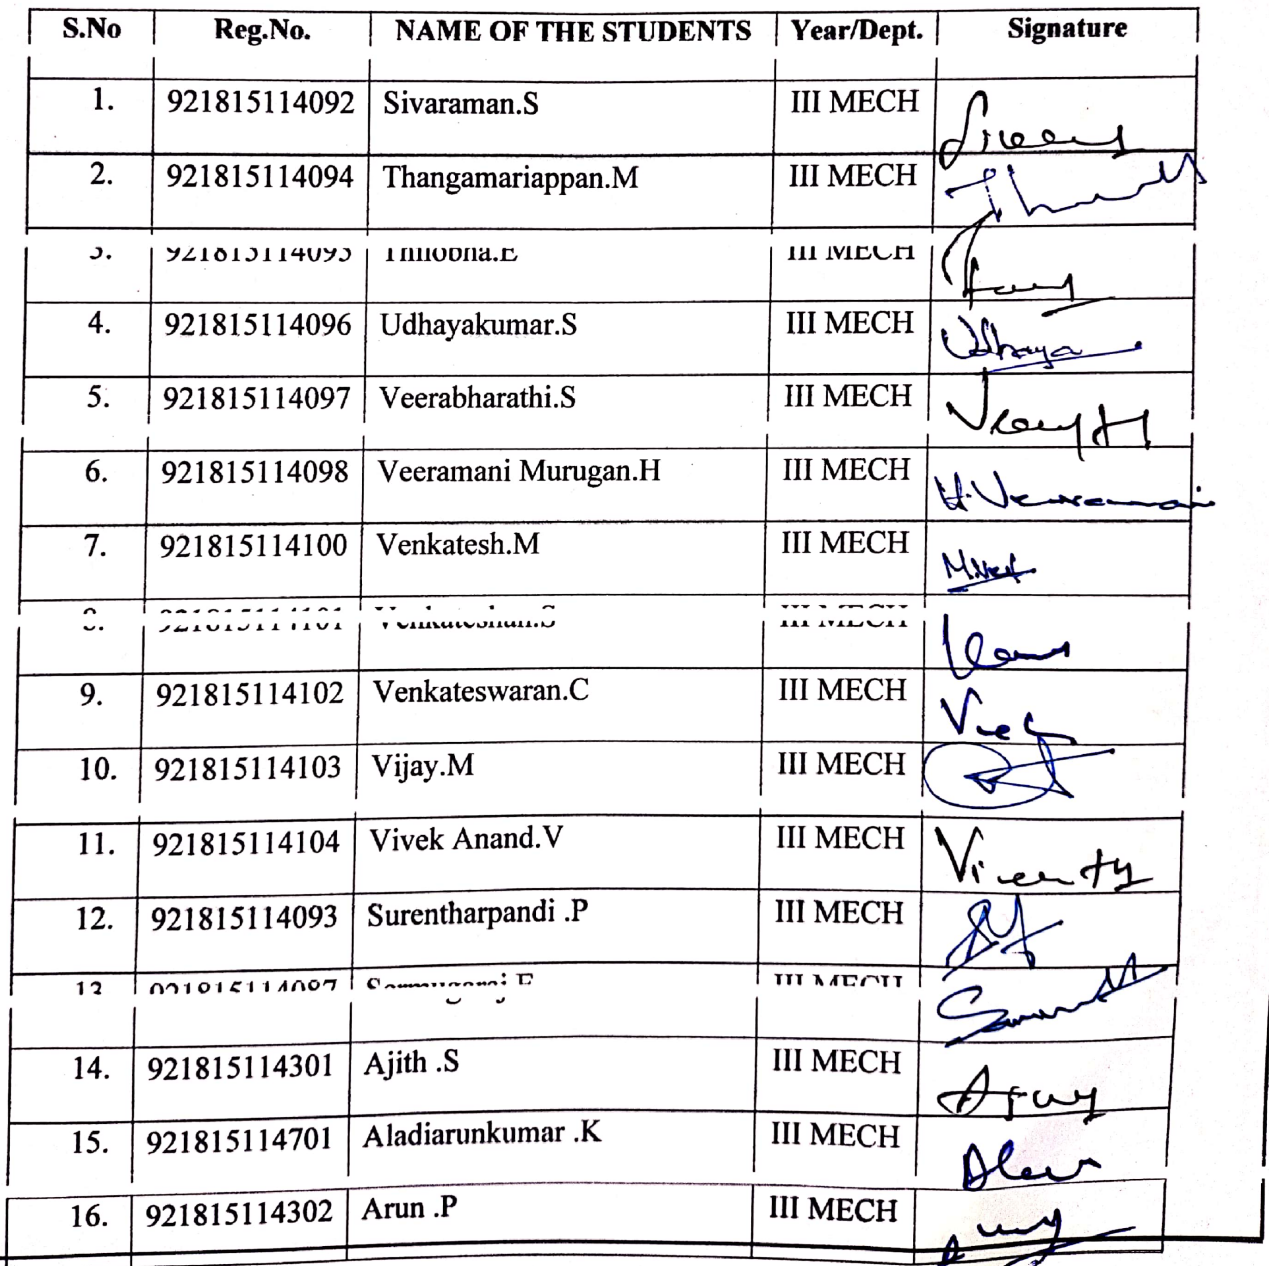 S.No Reg.No. NAME OF THE STUDENTS Year/Dept. Signature
1. 921815114092 Sivaraman.S III MECH
2. 921815114094 Thangamariappan.M III MECH
3. 921815114095 III MECH
4. 921815114096 Udhayakumar.S III MECH Udhaya
5. 921815114097 Veerabharathi.S III MECH
6. 921815114098 Veeramani Murugan.H III MECH
7. 921815114100 Venkatesh.M III MECH
8. 921815114101 Venkateshan.S III MECH
9. 921815114102 Venkateswaran.C III MECH
10. 921815114103 Vijay.M III MECH
11. 921815114104 Vivek Anand.V III MECH
12. 921815114093 Surentharpandi .P III MECH
13 921815114087 III MECH
14. 921815114301 Ajith .S III MECH
15. 921815114701 Aladiarunkumar .K III MECH
16. 921815114302 Arun .P III MECH